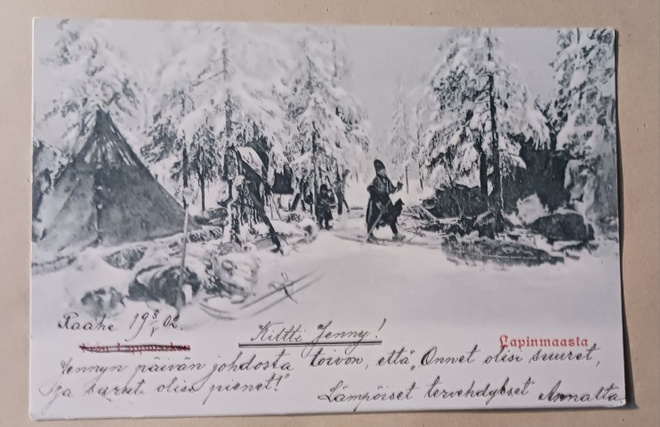 Raahe 19 5/V 02.
Kiltti Jenny!
Lapinmaasta
Jennyn päivän johdosta toivon, että „Onnet olisi suuret,
Ja surut olisi pienet!"
Lämpöiset tervehdykset Annalta.